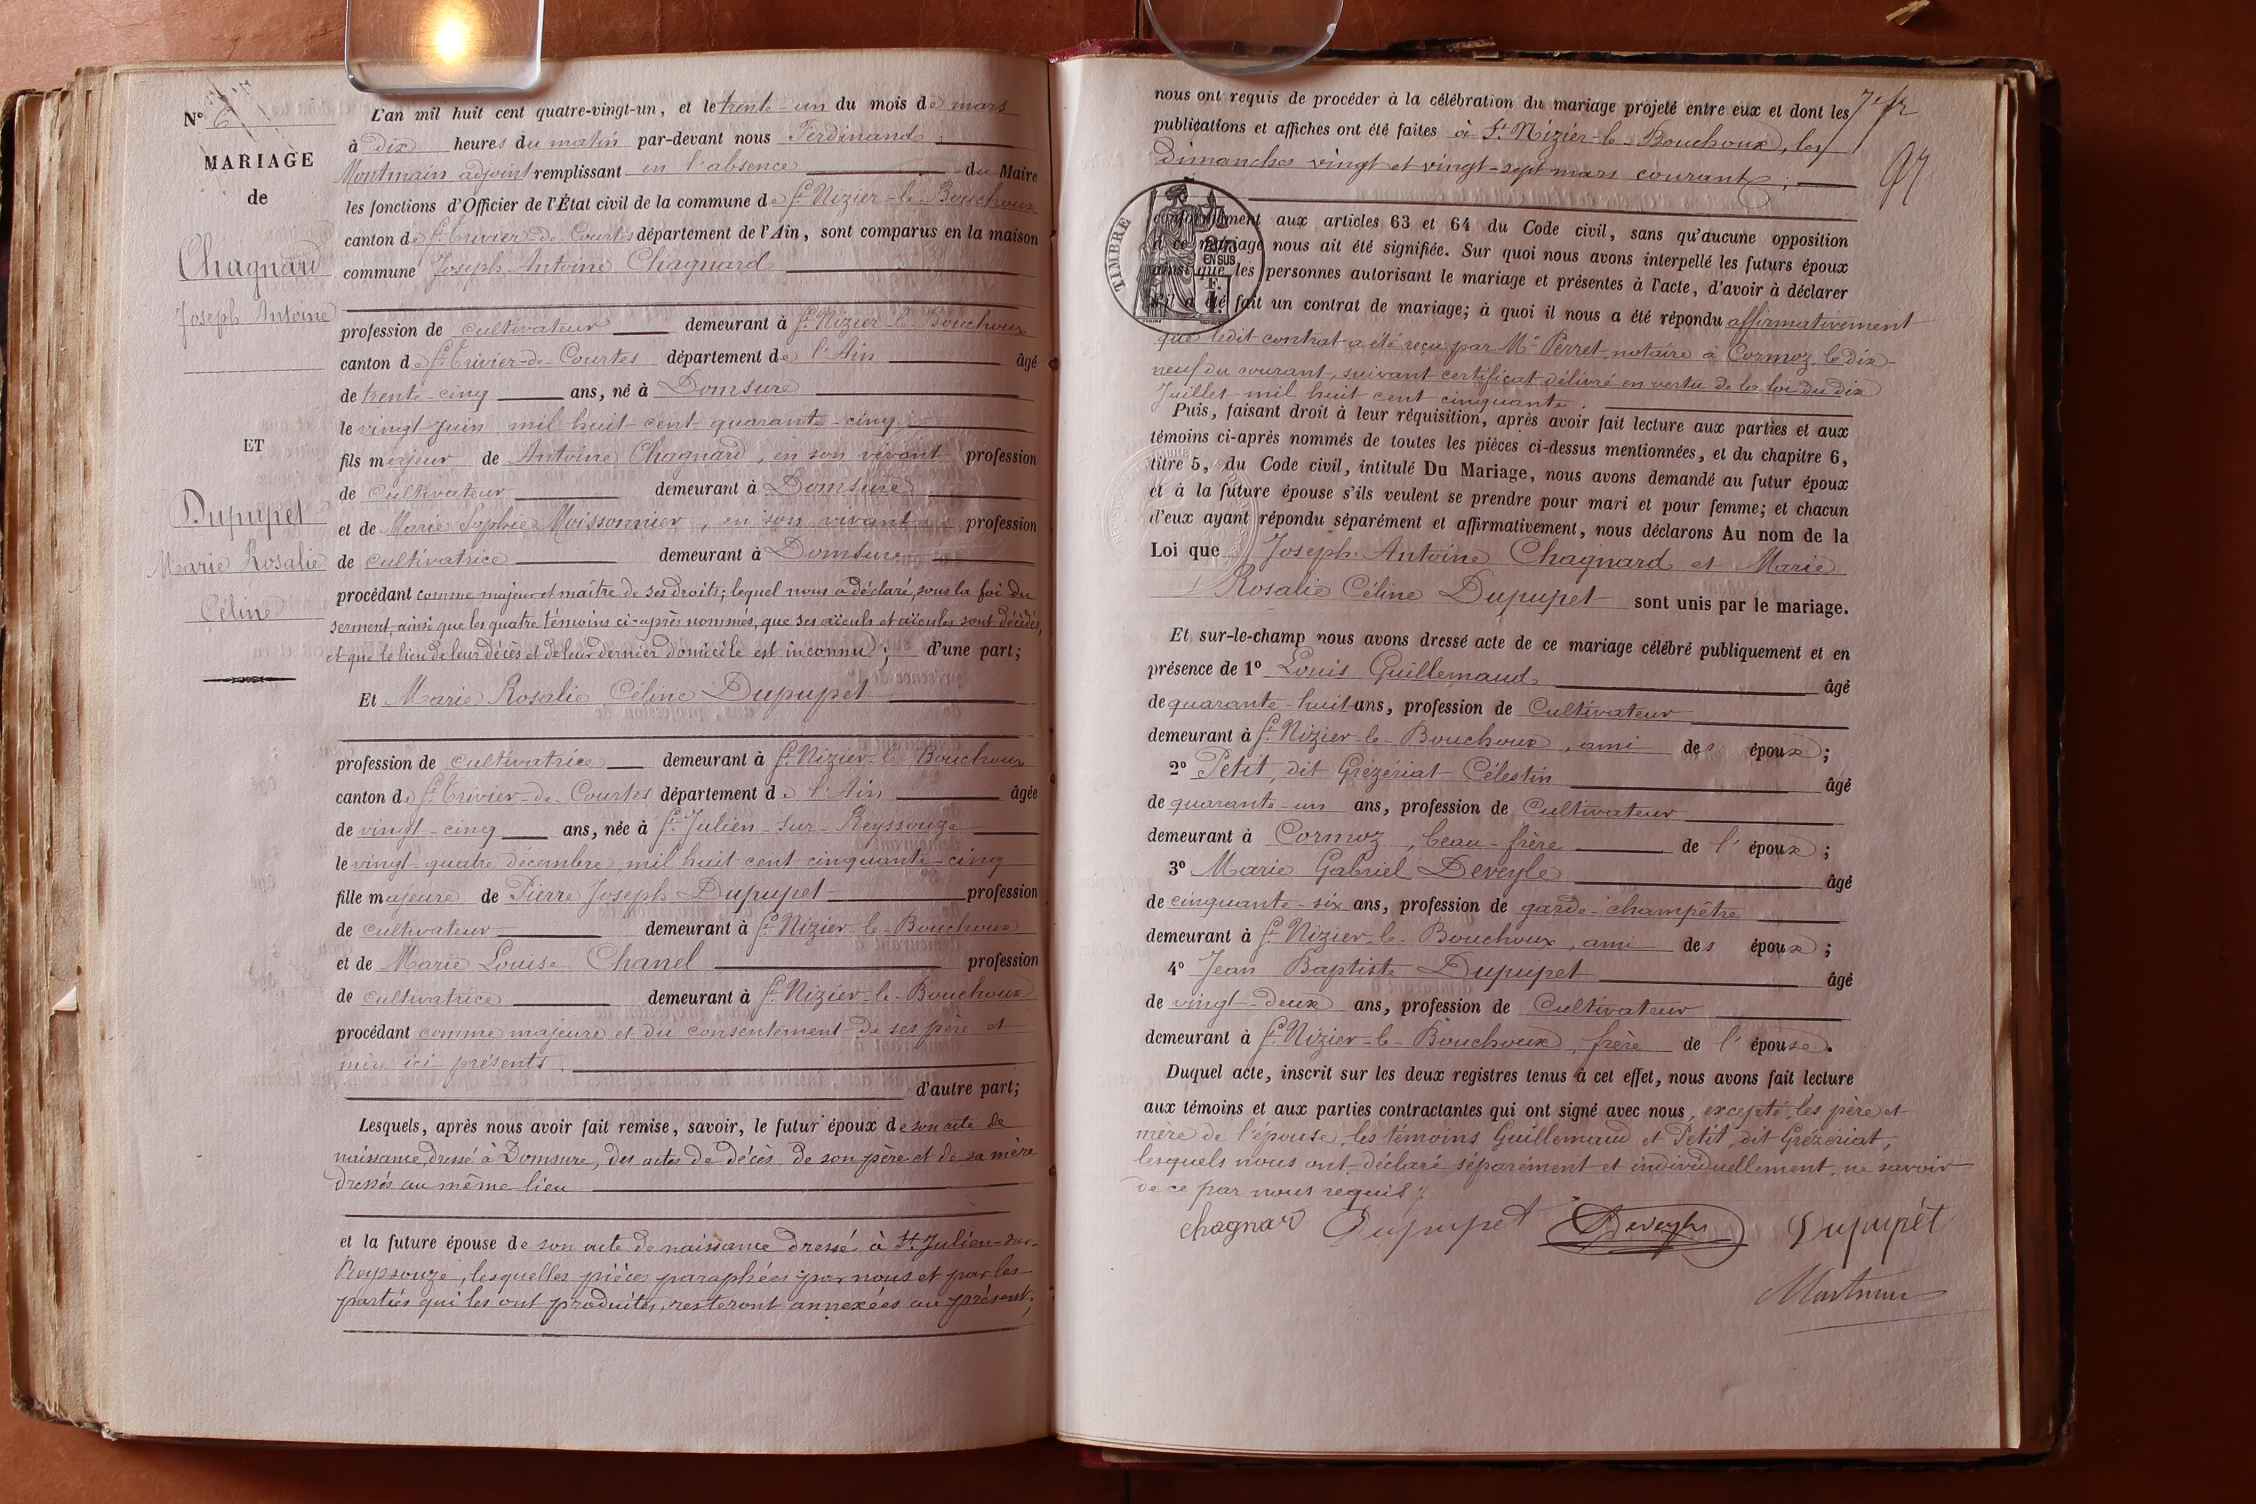 N° 6
MARIAGE
de
Chagnard
Joseph Antoine
ET
Dupupet
Marie Rosalie
Céline
L'an mil huit cent quatre-vingt-un, et le trente-un du mois de mars
à dix heures du matin par-devant nous Ferdinand
Montmain adjoint remplissant en l'absence du Maire
les fonctions d'Officier de l'État civil de la commune de St Nizier-le-Bouchoux
canton de St Trivier-de-Courtes département de l'Ain, sont comparus en la maison
commune Joseph Antoine Chagnard
profession de cultivateur demeurant à St Nizier-le-Bouchoux
canton de St Trivier-de-Courtes département de l'Ain âgé
de trente-cinq ans, né à Domsure
le vingt juin mil huit cent quarante-cinq
fils majeur de Antoine Chagnard, en son vivant profession
de cultivateur demeurant à Domsure
et de Marie Sophie Moissonnier, en son vivant profession
de cultivatrice demeurant à Domsure
procédant comme majeur et maître de ses droits; lequel nous a déclaré, sous la foi du
serment, ainsi que les quatre témoins ci-après nommés, que ses aïeuls et aïeules sont décédés,
et que le lieu de leur décès et de leur dernier domicile est inconnu; d'une part;
Et Marie Rosalie Céline Dupupet
profession de cultivatrice demeurant à St Nizier-le-Bouchoux
canton de St Trivier-de-Courtes département de l'Ain âgée
de vingt-cinq ans, née à St Julien-sur-Reyssouze
le vingt-quatre décembre mil huit cent cinquante-cinq
fille majeure de Pierre Joseph Dupupet profession
de cultivateur demeurant à St Nizier-le-Bouchoux
et de Marie Louise Chanel profession
de cultivatrice demeurant à St Nizier-le-Bouchoux
procédant comme majeure et du consentement de ses père et
mère ici présents.
d'autre part;
Lesquels, après nous avoir fait remise, savoir, le futur époux de son acte de
naissance dressé à Domsure, des actes de décès de son père et de sa mère
dressés au même lieu
et la future épouse de son acte de naissance dressé à St Julien-sur-
Reyssouze, lesquelles pièces paraphées par nous et par les
parties qui les ont produites, resteront annexées au présent;
nous ont requis de procéder à la célébration du mariage projeté entre eux et dont les
publications et affiches ont été faites à St Nizier-le-Bouchoux, les
dimanches vingt et vingt-sept mars courant;
TIMBRE
EN SUS
conformément aux articles 63 et 64 du Code civil, sans qu'aucune opposition
à ce mariage nous ait été signifiée. Sur quoi nous avons interpellé les futurs époux
ainsi que les personnes autorisant le mariage et présentes à l'acte, d'avoir à déclarer
s'il a été fait un contrat de mariage; à quoi il nous a été répondu affirmativement
que ledit contrat a été reçu par Me Perret notaire à Cormoz le dix-
neuf du courant, suivant certificat délivré en vertu de la loi du dix
Juillet mil huit cent cinquante.
Puis, faisant droit à leur réquisition, après avoir fait lecture aux parties et aux
témoins ci-après nommés de toutes les pièces ci-dessus mentionnées, et du chapitre 6,
titre 5, du Code civil, intitulé Du Mariage, nous avons demandé au futur époux
et à la future épouse s'ils veulent se prendre pour mari et pour femme; et chacun
d'eux ayant répondu séparément et affirmativement, nous déclarons Au nom de la
Loi que Joseph Antoine Chagnard et Marie
Rosalie Céline Dupupet sont unis par le mariage.
Et sur-le-champ nous avons dressé acte de ce mariage célébré publiquement et en
présence de 1° Louis Guillemaud âgé
de quarante-huit ans, profession de Cultivateur
demeurant à St Nizier-le-Bouchoux, ami des époux;
2° Petit, dit Grézériat Célestin âgé
de quarante-un ans, profession de Cultivateur
demeurant à Cormoz, beau-frère de l'époux;
3° Marie Gabriel Deveyle âgé
de cinquante-six ans, profession de garde-champêtre
demeurant à St Nizier-le-Bouchoux, ami des époux;
4° Jean Baptiste Dupupet âgé
de vingt-deux ans, profession de Cultivateur
demeurant à St Nizier-le-Bouchoux, frère de l'épouse.
Duquel acte, inscrit sur les deux registres tenus à cet effet, nous avons fait lecture
aux témoins et aux parties contractantes qui ont signé avec nous, excepté les père et
mère de l'épouse, les témoins Guillemaud et Petit, dit Grézériat,
lesquels nous ont déclaré séparément et individuellement ne savoir
de ce par nous requis.
chagnard Dupupet Deveyle Dupupet
Montmain